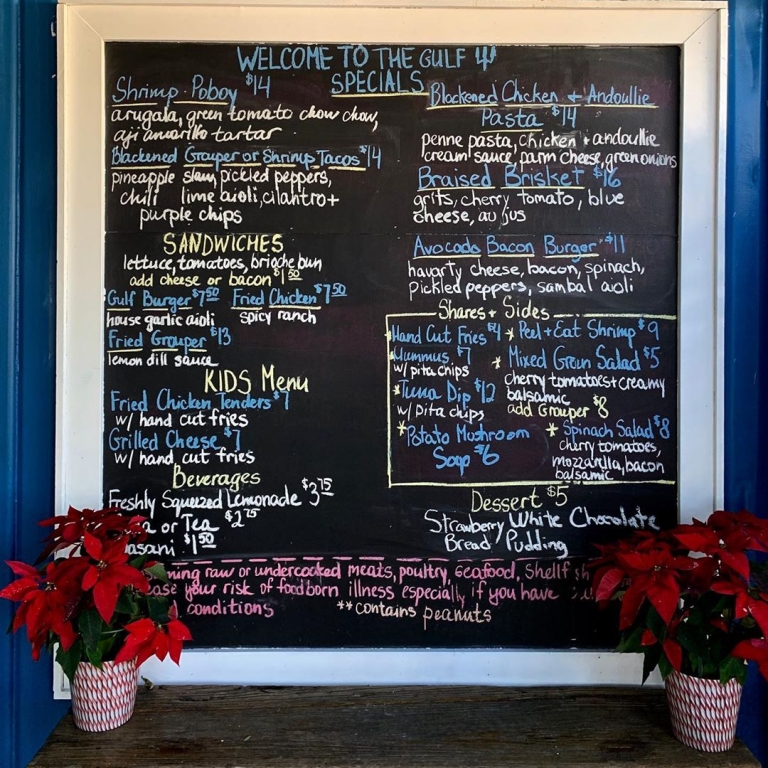 WELCOME TO THE GULF
SPECIALS
Shrimp Poboy $14
arugala, green tomato chow chow,
aji amarillo tartar
Blackened Grouper or Shrimp Tacos $14
pineapple slaw, pickled peppers,
chili lime aioli, cilantro +
purple chips
Blackened Chicken + Andoullie
Pasta $14
penne pasta, chicken + andoullie
cream sauce, parm cheese, green onions
Braised Brisket $16
grits, cherry tomato, blue
cheese, au jus
SANDWICHES
lettuce, tomatoes, brioche bun
add cheese or bacon $1.50
Gulf Burger $7.50 Fried Chicken $7.50
house garlic aioli spicy ranch
Fried Grouper $13
lemon dill sauce
Avocado Bacon Burger $11
havarty cheese, bacon, spinach,
pickled peppers, sambal aioli
KIDS Menu
Fried Chicken Tenders $7
w/ hand cut fries
Grilled Cheese $7
w/ hand cut fries
Beverages
Freshly Squeezed Lemonade $3.75
or Tea $2.75
asani $1.50
Shares + Sides
*Hand Cut Fries $4
*Hummus $7
w/ pita chips
*Tuna Dip $12
w/ pita chips
*Potato Mushroom
Soup $6
*Peel + Eat Shrimp $9
*Mixed Green Salad $5
cherry tomatoes + creamy
balsamic
add Grouper $8
*Spinach Salad $8
cherry tomatoes,
mozzarella, bacon
balsamic
Dessert $5
Strawberry White Chocolate
Bread Pudding
ming raw or undercooked meats, poultry, seafood, shellf sh
ease your risk of foodborn illness especially if you have
conditions **contains peanuts